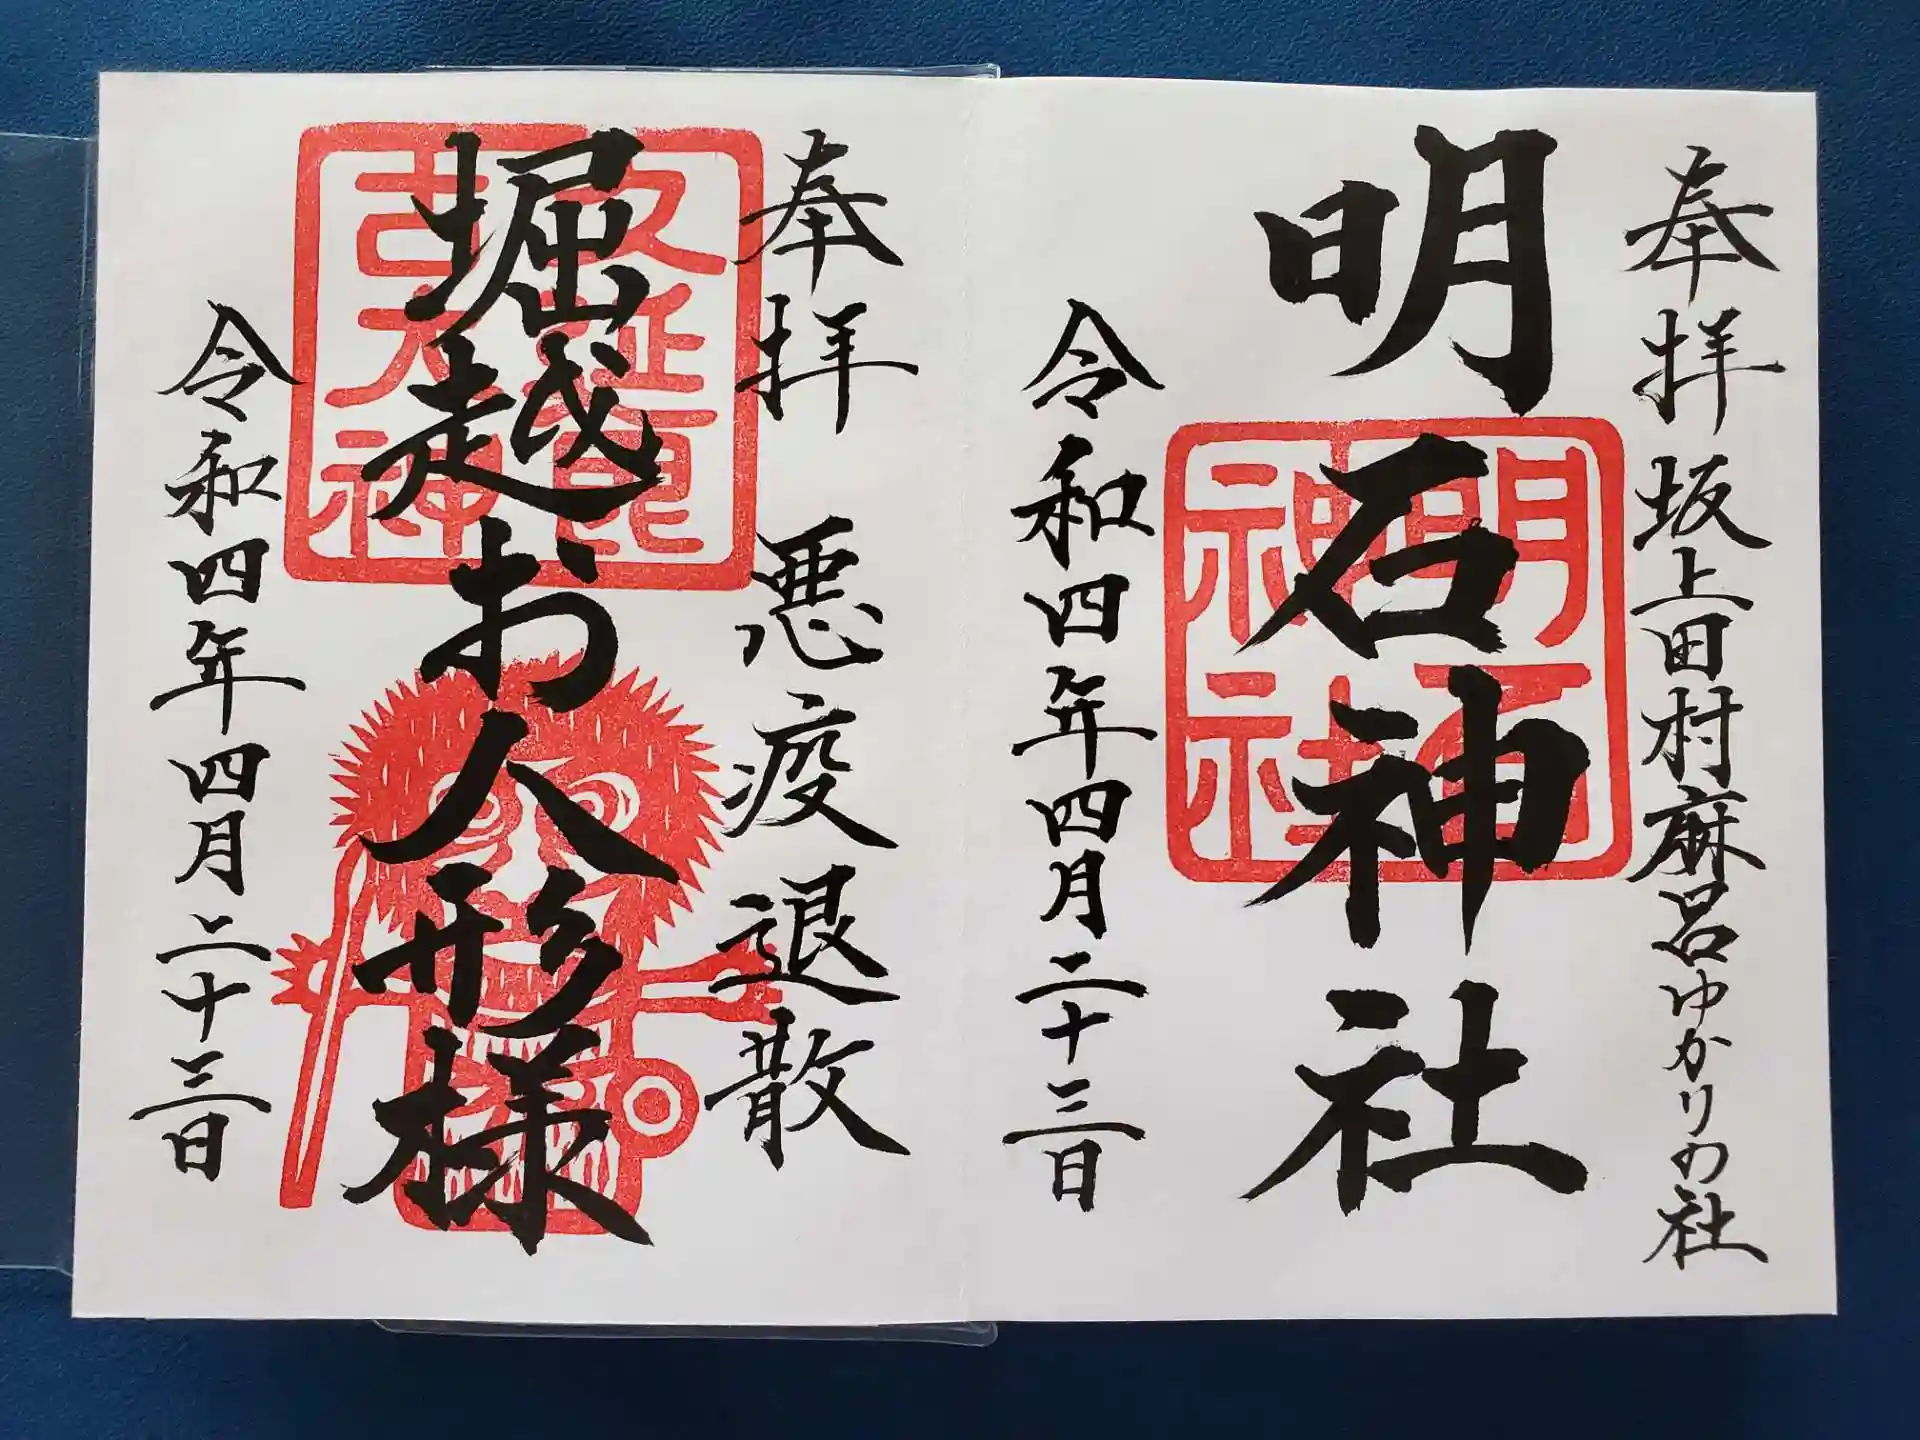 奉拝 坂上田村麻呂ゆかりの社
明石神社
明石
神社
令和四年四月二十三日
奉拝 悪疫退散
堀越お人形様
久延毘
古大神
令和四年四月二十三日